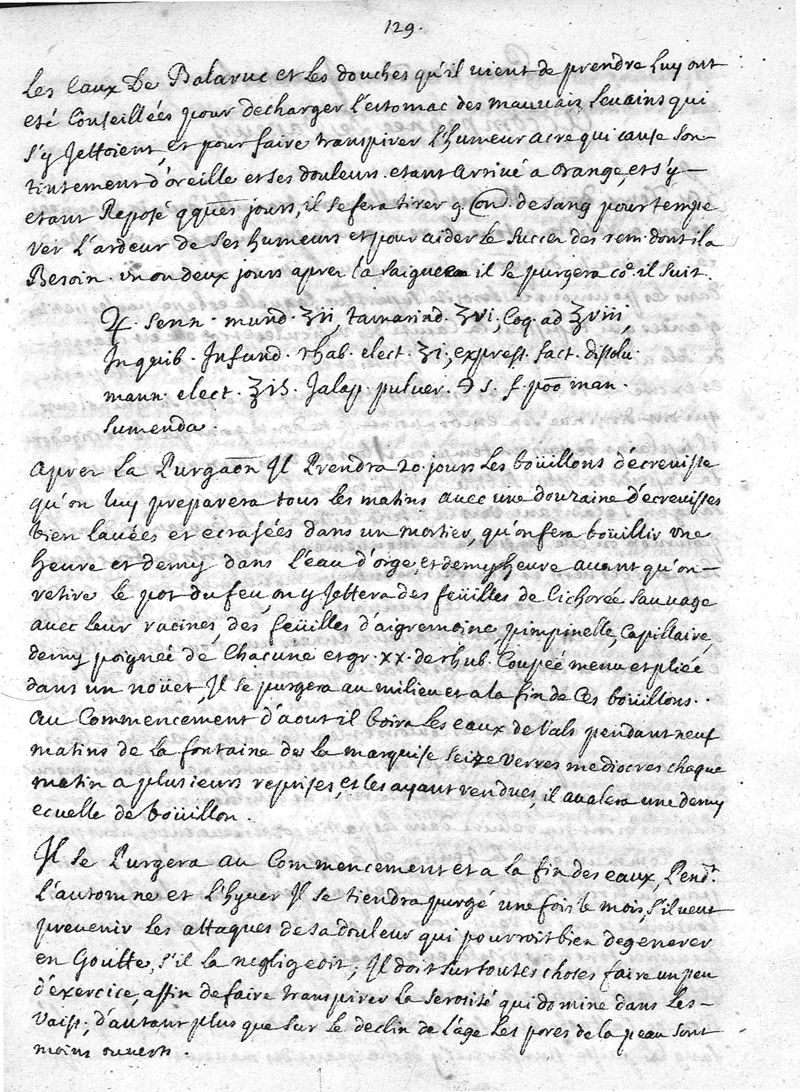 129.
Les Eaux De Balaruc et Les douches qu'il vient de prendre Luy ont
eté Conseillées pour decharger L'estomac des mauvais Levains qui
s'y Jettoient, et pour faire transpirer L'humeur acre qui cause son
tintement d'oreille et ses douleurs. etant Arrivé a orange, et s'y —
etant Reposé qques jours, il se fera tirer 9 on. de sang pour tempe
rer L'ardeur de ses humeurs et pour aider Le succer des rem. dont il a
Besoin. un ou deux jours aprer la saignee il se purgera co͞e il suit.
♃. senn. mund. ʒii, tamarind. ʒvi, Coq. ad ℥viii,
In quib. Infund. rhab. elect. ʒi, express. fact. dissolu.
mann. elect. ℥iß. Jalap. pulver. ℈s. f. poo man.
Sumenda.
aprer La Purgaōn Il Prendra 20 jours Les boüillons d'écrevisse
qu'on luy preparera tous les matins avec une douzaine d'écrevisses
bien lavées et ecrasées dans un mortier, qu'on fera boüillir une
heure et demy dans L'eau d'orge, et demy heure avant qu'on —
retire le pot du feu, on y Jettera des feüilles de Cichorée sauvage
avec Leur racines, des feüilles d'aigremoine, pimpinelle, Capillaire,
demy poignée de Chacune et gr. xx. de rhub. Coupée menu et pliée
dans un noüet, Il se purgera au milieu et a la fin de Ces boüillons..
au Commencement d'aout il boira Les eaux de Vals pendant neuf
matins de la fontaine de la marquise seize verres mediocres chaque
matin a plusieurs reprises, et les ayant rendues, il avalera une demy
ecuelle de boüillon.
Il se Purgera au Commencement et a la fin des eaux, Pendt.
L'automne et L'hyver Il se tiendra purgé une fois le mois, s'il veut
prevenir Les attaques de sa douleur qui pourroit bien degenerer
en Goutte, s'il La negligeoit; Il doit sur toutes choses faire un peu
d'exercice, affin de faire transpirer La serosité qui domine dans Les —
Vaiss; d'autant plus que sur Le declin de L'age Les pores de la peau sont
moins ouverts.